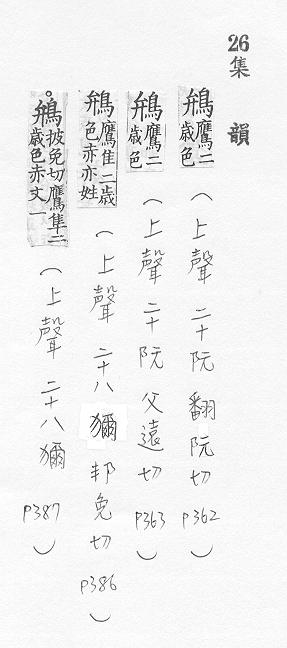 26 集韻
鴘鷹二歲色（上聲 二十阮 翻阮切 P362）
鴘鷹二歲色（上聲 二十阮 父遠切 P363）
鴘鷹隹二歲色赤亦姓（上聲 二十八獮 邦免切 P386）
。鴘披免切鷹隼二歲色亦文一（上聲 二十八獮 P387）